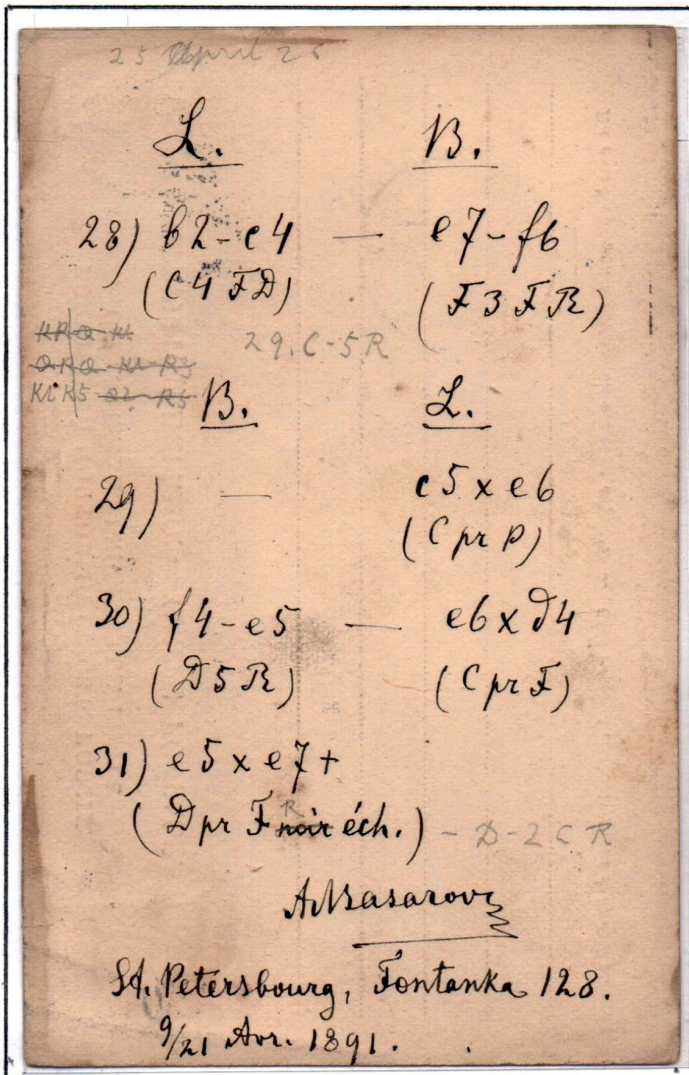 25 April 26
L. B.
28) b2-c4 — e7-f6
(C4FD) (F3FR)
29. C-5R
B. L.
29) — c5xe6
(C pr P)
30) f4-e5 — e6xd4
(D5R) (C pr F)
31) e5xe7+
(D pr F R noir éch.) - D-2CR
St. Petersbourg, Fontanka 128.
9/21 Avr. 1891.